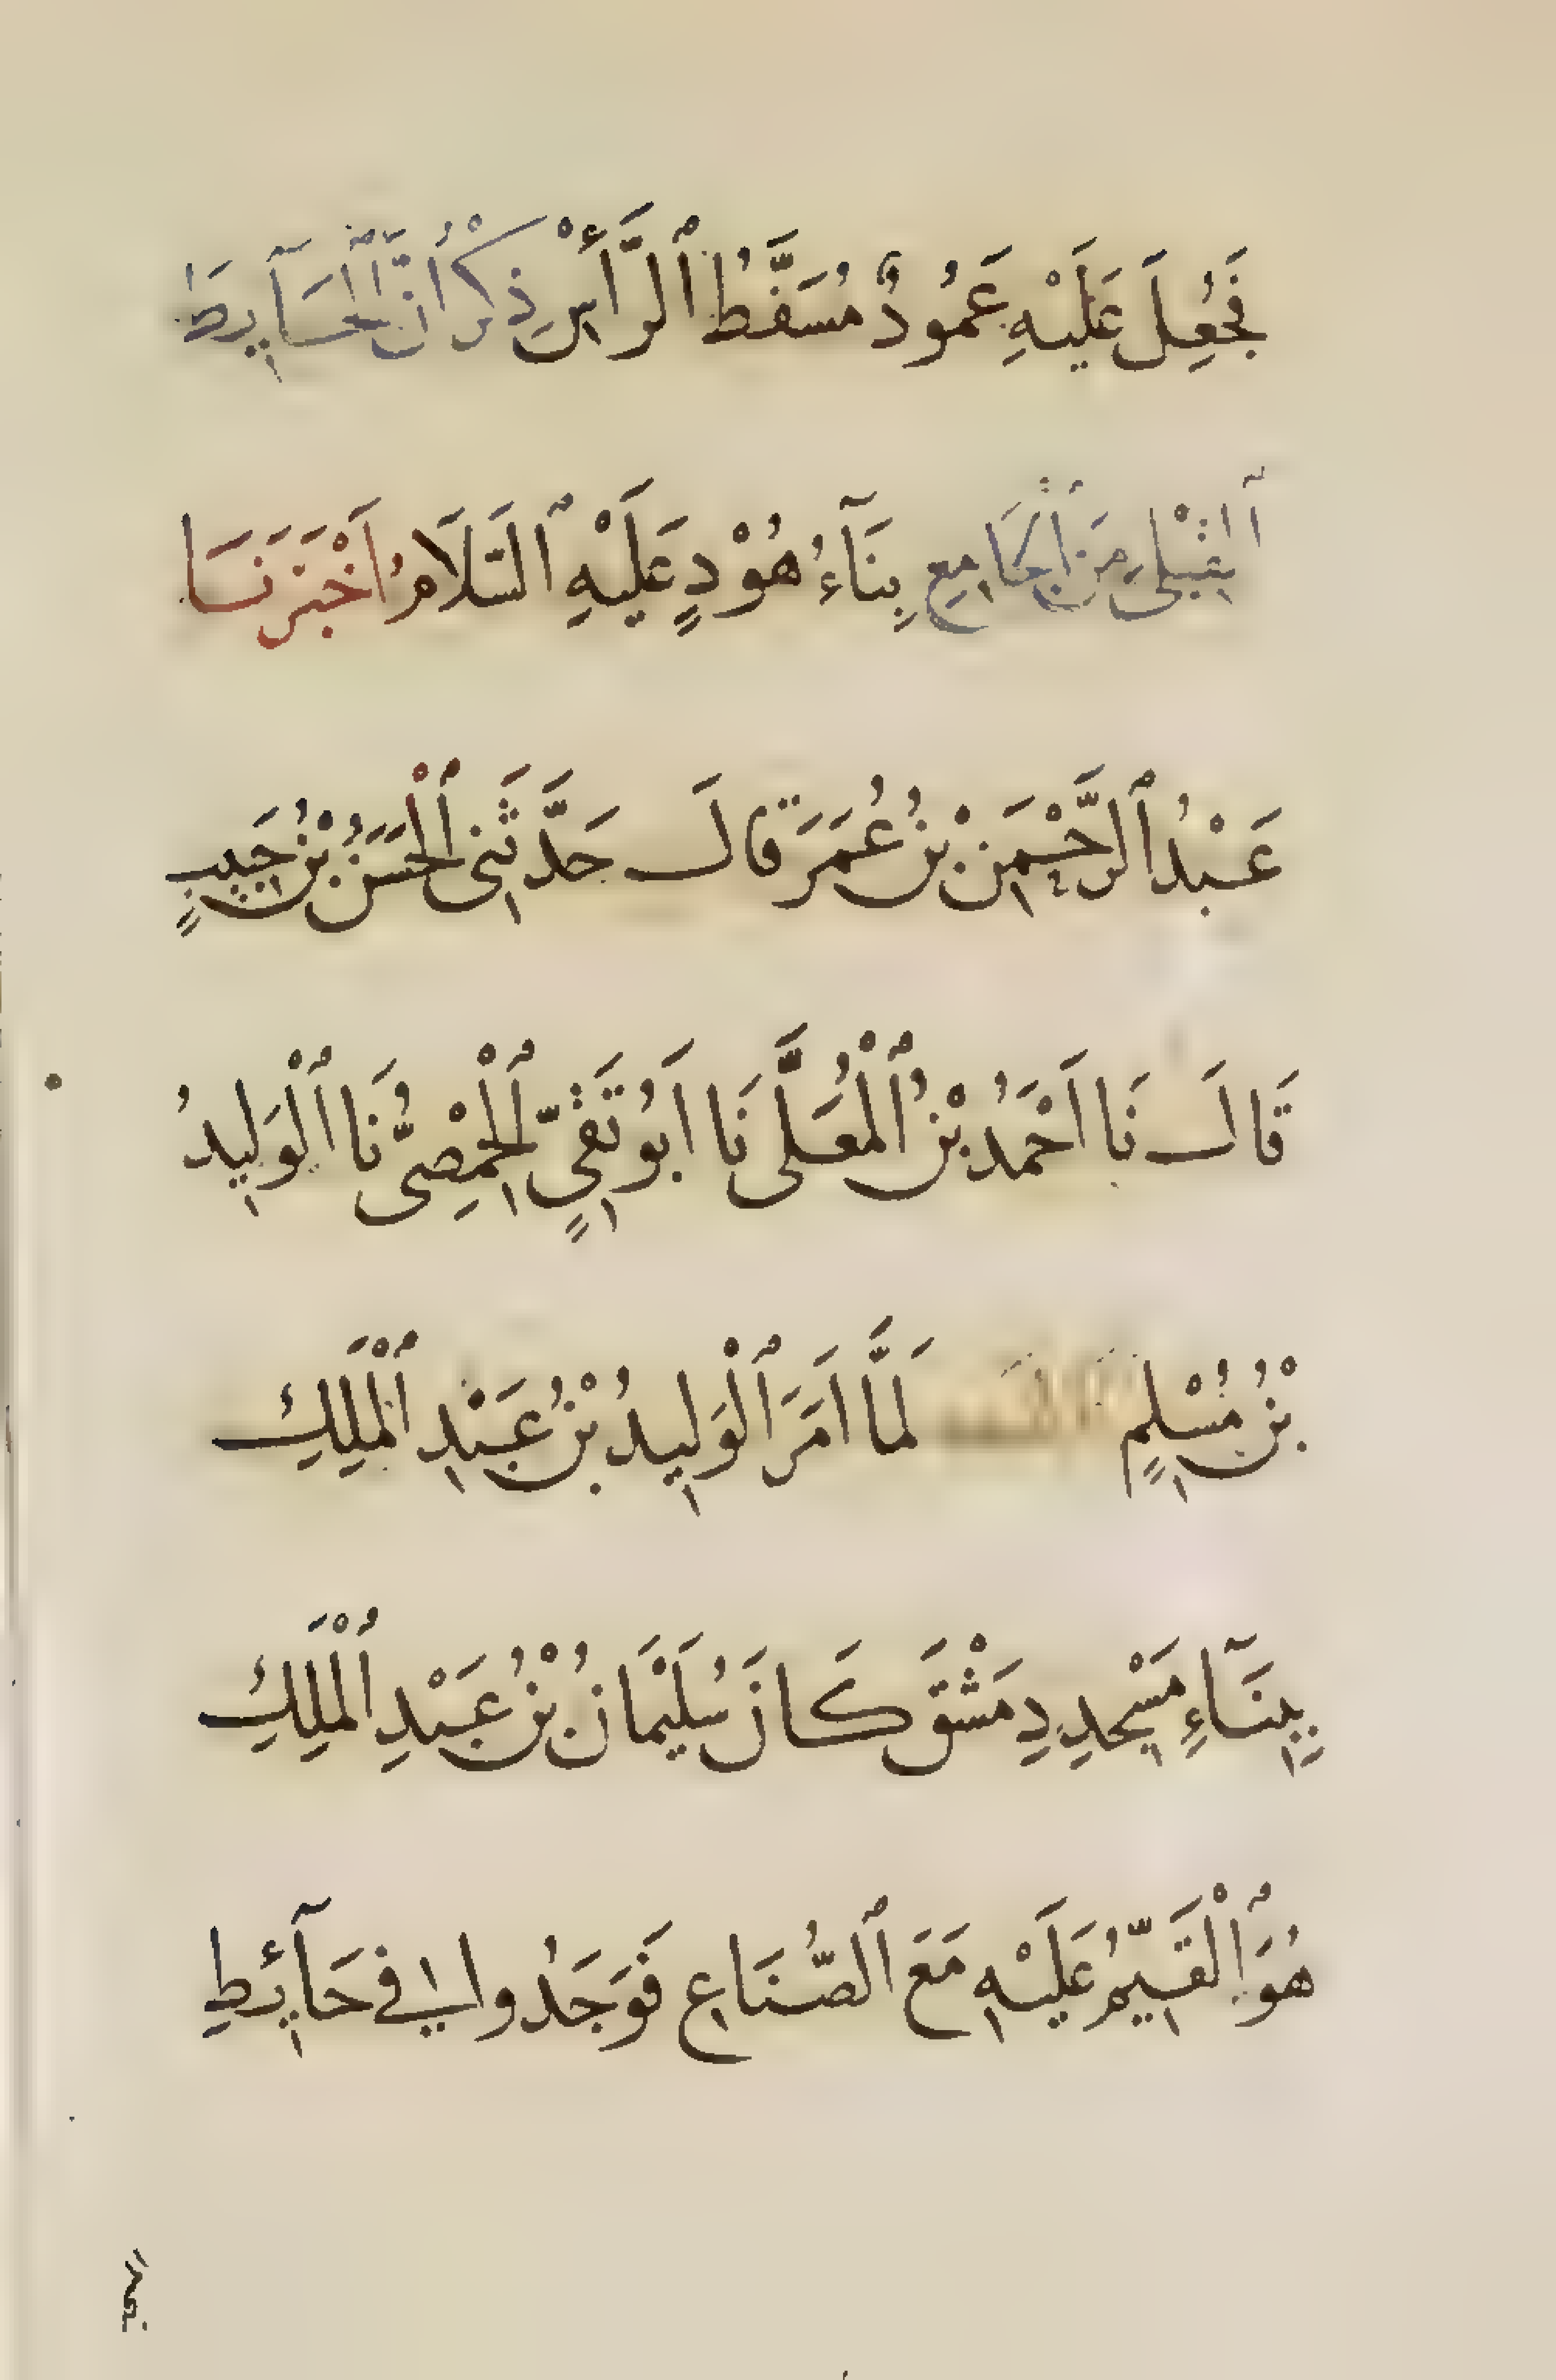 فَجُعِلَ عَلَيْهِ عَمُودٌ مُسَفَّطُ ٱلرَّأْسِ ذِكْرُ أَنَّ ٱلْحَآيِطَ
ٱلْقِبْلِي مِنَ ٱلْجَامِعِ بِنَآءُ هُوْدٍ عَلَيْهِ ٱلسَّلَامُ اَخْبَرَنَا
عَبْدُ ٱلرَّحْمَنِ بْنُ عُمَرَ قَالَ حَدَّثَنِى ٱلْحَسَنُ بْنُ حَبِيبٍ
قَالَ نَا اَحْمَدُ بْنُ ٱلْمُعَلَّى نَا اَبُو تَقِيٍّ ٱلْحِمْصِىُّ نَا ٱلْوَلِيدُ
بْنُ مُسْلِمٍ لَمَّا اَمَرَ ٱلْوَلِيدُ بْنُ عَبْدِ ٱلْمَلِكِ
بِبِنَآءِ مَسْجِدِ دِمَشْقَ كَانَ سُلَيْمَانُ بْنُ عَبْدِ ٱلْمَلِكِ
هُوَ ٱلْقَيِّمُ عَلَيْهِ مَعَ ٱلصُّنَاعِ فَوَجَدُوا فِي حَآئِطِ